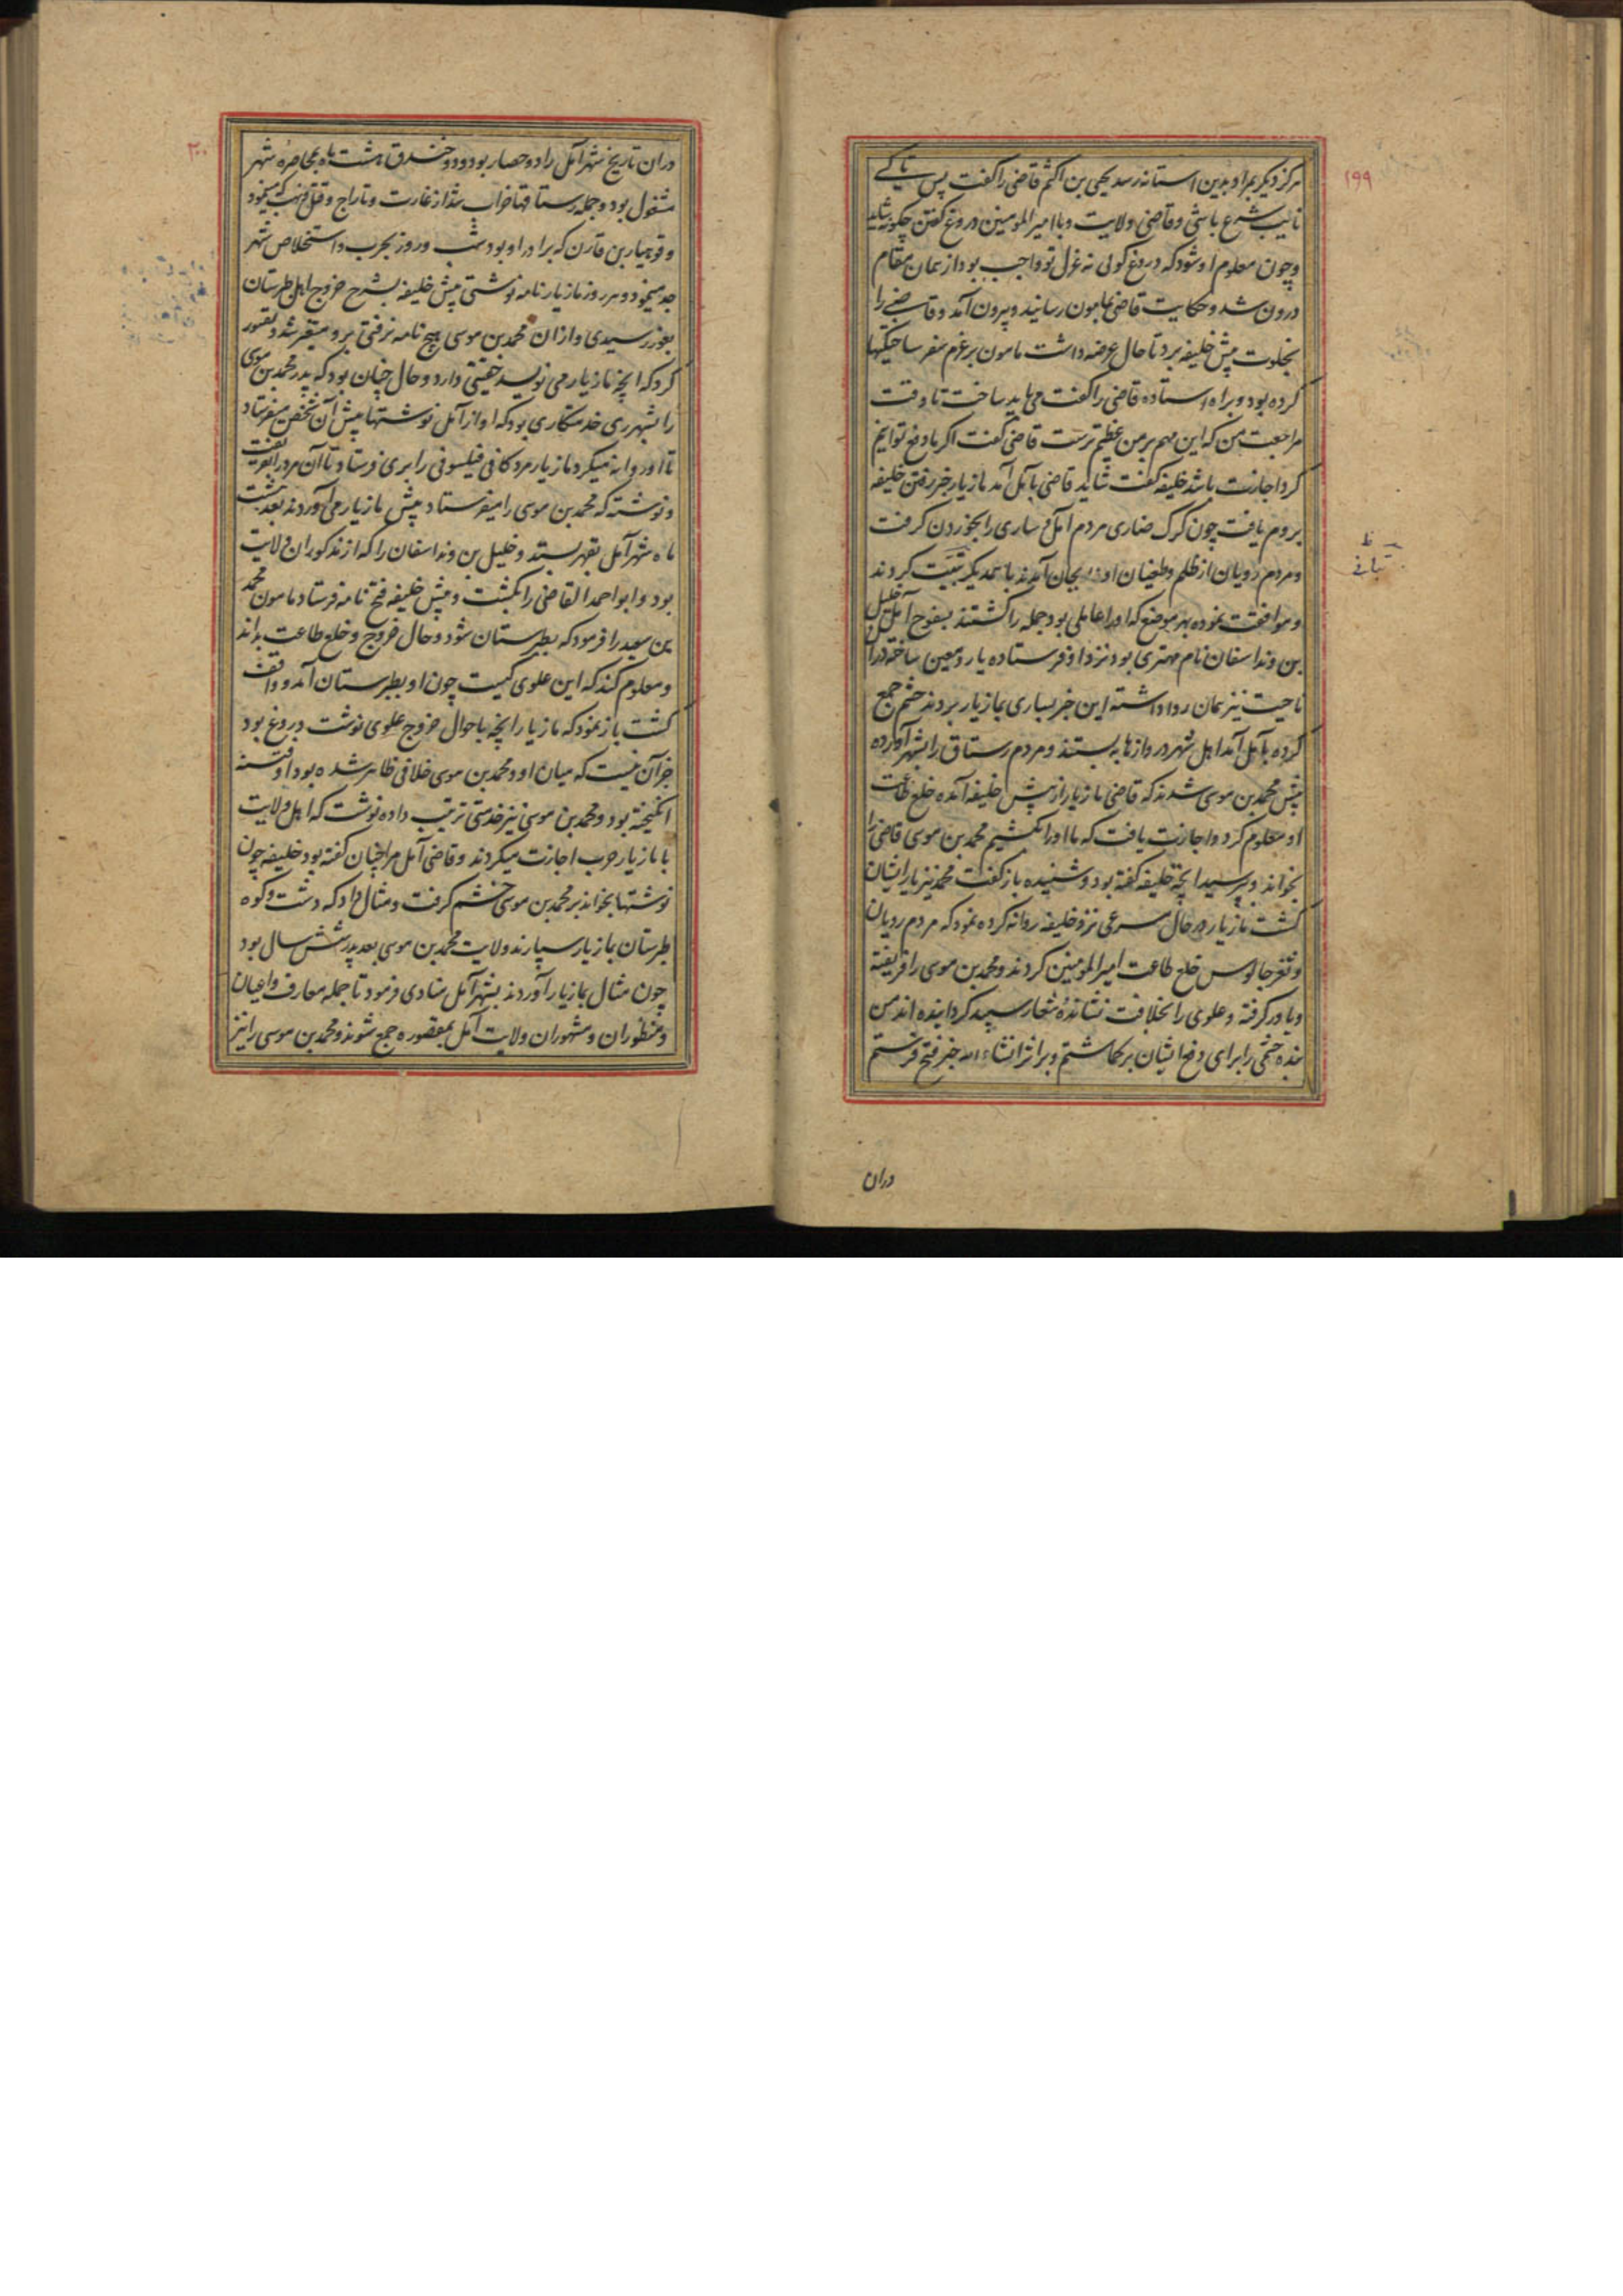 ۱۹۹
هرگز دیگر بمراد بدین استانه رسد یحیی بن اکثم قاضی را گفت پس تا کے
نایب شرع باشی و قاضی ولایت و با امیر المومنین دروغ گفتن چگونه شاید
و چون معلوم او شود که دروغ گوئی نه عزل تو واجب بود از همان مقام
درون شد و حکایت قاضی بمامون رسانید و بیرون آمد و قاضے را
بخلوت پیش خلیفه برد تا حال عرضه داشت مامون بر عزم سفر ساختگیها
کرده بود و براه استاده قاضی را گفت می باید ساخت تا وقت
مراجعت من که این مهم بر من عظیم ترست قاضی گفت اگر ما دفع توانیم
کرد اجازت باشد خلیفه گفت شاید قاضی بآمل آمد مازیار خبر رفتن خلیفه
بروم یافت چون گرگ ضاری مردم آمل و ساری را بخوردن گرفت
و مردم رویان از ظلم و طغیان او بجان آمدند با همدیگر تثبیت کردند
و موافقت نموده بهر موضع که او را عاملی بود جمله را کشتند بفوح آمل خلیل
بن ونداسفان نام مهتری بود نزد او فرستاده یار و معین ساخته در آن
ناحیت نیز همان روا داشته این خبر بساری بمازیار بردند حشم جمع
کرده بآمل آمد اهل شهر دروازها به بستند و مردم رستاق را بشهر آورده
پیش محمد بن موسی شدند که قاضی مازیار از پیش خلیفه آمده خلع طاعت
او معلوم کرد و اجازت یافت که ما او را بکشیم محمد بن موسی قاضی را
بخواند و بپرسید آنچه خلیفه گفته بود و شنیده باز گفت محمد نیز یار ایشان
گشت مازیار در حال مسرعی نزد خلیفه روانه کرده نمود که مردم رویان
و ثغر چالوس خلع طاعت امیر المومنین کردند و محمد بن موسی را فریفته
و یاور گرفته و علوی را بخلافت نشانده شعار سپید گردانیده اند من
بنده حشمی را برای دفع ایشان برگماشتم و بر اثر انشاء الله خبر فتح فرستم
دران
۲۰۰
دران تاریخ شهر آمل را دو حصار بود و دو خندق هشت ماه بمحاصره شهر
مشغول بود و جمله رستاقها خراب شد از غارت و تاراج و قتل و نهب که میخمود
و قوهیار بن قارن که برادر او بود شب و روز بحرب و استخلاص شهر
جد مینمود و هر روز مازیار نامه نوشتی پیش خلیفه بشرح خروج اهل طبرستان
بغور رسیدی و از ان محمد بن موسی هیچ نامه نرفتی برو متغیر شد و تصور
کرد که آنچه مازیار می نویسد حقیقتی دارد و حال چنان بود که پدر محمد بن موسی
را بشهر ری خدمتکاری بود که او از آمل نوشتها پیش آن شخص میفرستاد
تا او روانه میکرد مازیار مرد کافی فیلسوفی را بری فرستاد تا آن مرد را بفریفت
و نوشته که محمد بن موسی را میفرستاد پیش مازیار می آوردند بعد هشت
ماه شهر آمل بقهر بستد و خلیل بن ونداسفان را که از مذکوران ولایت
بود و ابو احمد القاضی را بکشت و پیش خلیفه فتح نامه فرستاد مامون محمد
بن سعید را فرمود که بطبرستان شود و حال خروج و خلع طاعت بداند
و معلوم کند که این علوی کیست چون او بطبرستان آمد و واقف
گشت باز نمود که مازیار آنچه باحوال خروج علوی نوشت دروغ بود
جز آن نیست که میان او و محمد بن موسی خلافی ظاهر شده بود او فتنه
انگیخته بود و محمد بن موسی نیز خدمتی ترتیب داده نوشت که اهل ولایت
با مازیار حرب اجازت میکردند و قاضی آمل مرا چنان گفته بود خلیفه چون
نوشتها بخواند بر محمد بن موسی خشم گرفت و مثال داد که دشت و کوه
طبرستان بمازیار سپارند ولایت محمد بن موسی بعد پدر شش سال بود
چون مثال بمازیار آوردند بشهر آمل منادی فرمود تا جمله معارف و اعیان
و منظوران و مشهوران ولایت آمل بمقصوره جمع شوند و محمد بن موسی را نیز